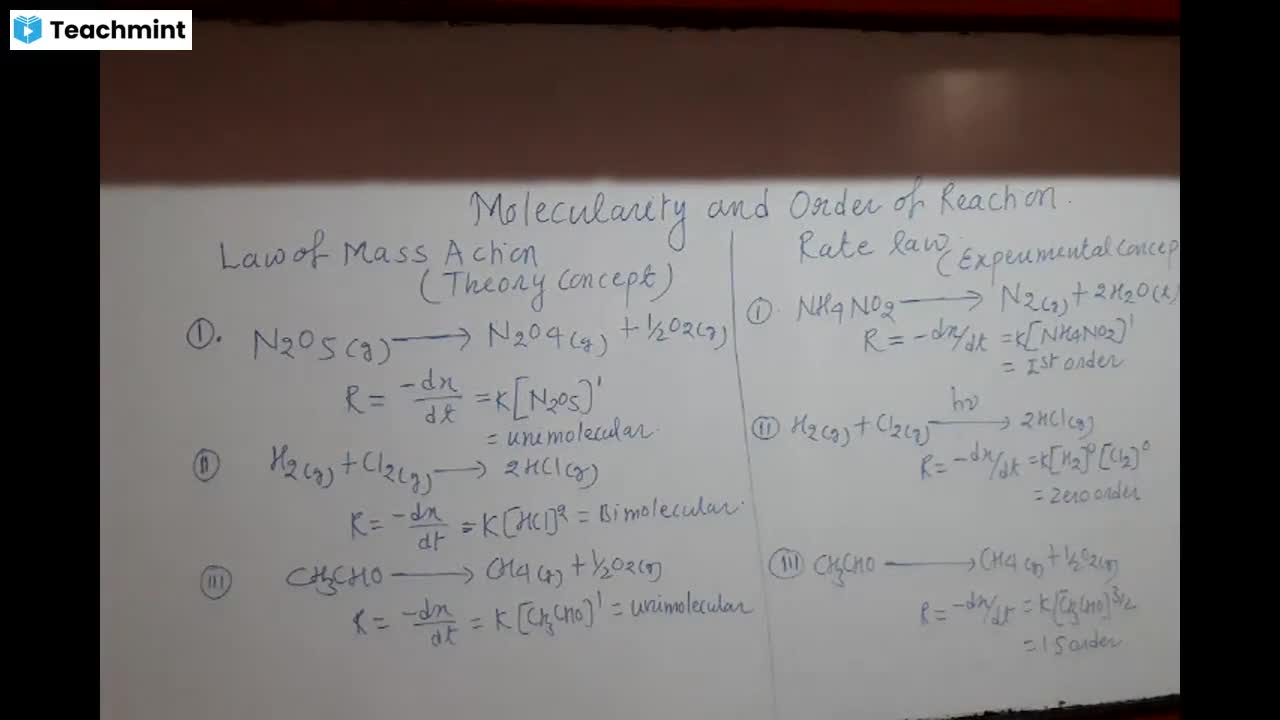 Teachmint
Molecularity and Order of Reaction.
Law of Mass Action
(Theory Concept)
I. N2O5(g) ⟶ N2O4(g) + 1/2O2(g)
R = -dx/dt = K[N2O5]¹
= unimolecular.
II H2(g) + Cl2(g) ⟶ 2HCl(g)
R = -dx/dt = K[HCl]² = Bimolecular.
III CH3CHO ⟶ CH4(g) + 1/2O2(g)
R = -dx/dt = K[CH3CHO]¹ = unimolecular
Rate law
(Experimental Concep
I NH4NO2 ⟶ N2(g) + 2H2O(l)
R = -dx/dt = K[NH4NO2]¹
= Ist order
II H2(g) + Cl2(g) hν⟶ 2HCl(g)
R = -dx/dt = K[H2]⁰[Cl2]⁰
= Zero order
III CH3CHO ⟶ CH4(g) + 1/2O2(g)
R = -dx/dt = K[CH3CHO]^3/2
= 1.5 order